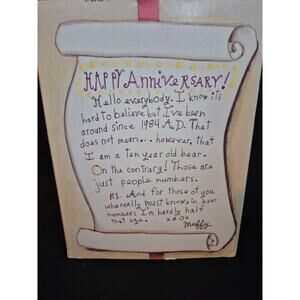 HAPPY AnniveRSARY!
Hello everybody. I know it is
hard to believe but I've been
around since 1984 A.D. That
does not mean... however, that
I am a ten year old bear.
On the contrary! Those are
just people numbers.
P.S. And for those of you
who really must know, in bear
numbers I'm hardly half
that age. xxOo
Muffy